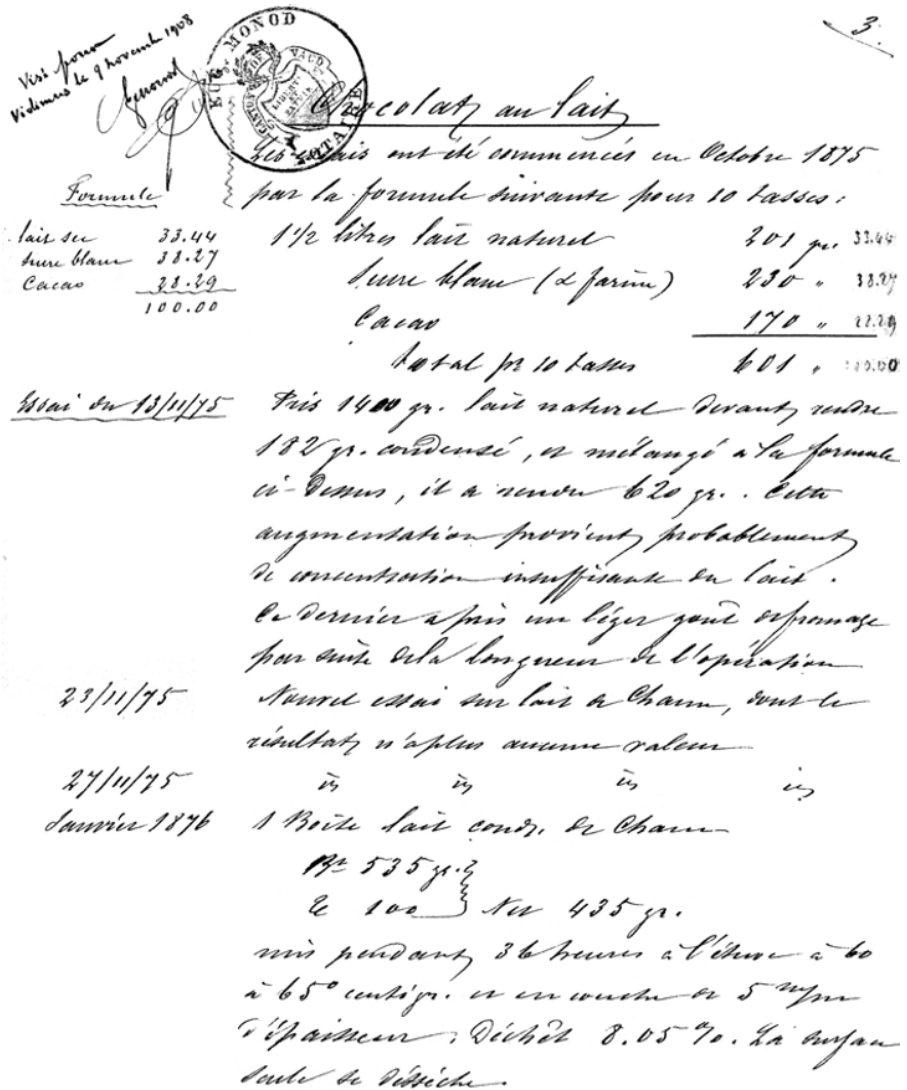 Visé pour
Vidimus le 9 novembre 1908
EUG. MONOD
NOTAIRE
CANTON DE VAUD
LIBERTÉ ET PATRIE
3.
Chocolat au lait
Les essais ont été commencés en Octobre 1875
par la formule suivante pour 10 tasses:
Formule
lait sec 33.44
sucre blanc 38.27
Cacao 28.29
100.00
1 1/2 litres lait naturel 201 gr. 33.44
Sucre blanc (& farine) 230 " 38.27
Cacao 170 " 28.29
Total pr 10 tasses 601 " 100.00
Essai du 13/11/75 Pris 1400 gr. lait naturel devant rendre
182 gr. condensé, et mélangé à la formule
ci-dessus, il a rendu 620 gr.. Cette
augmentation provient probablement
de concentration insuffisante du lait.
Ce dernier a pris un léger goût de fromage
par suite de la longueur de l'opération
23/11/75 Nouvel essai sur lait de Cham, dont le
résultat n'a plus aucune valeur
27/11/75 id id id id
Janvier 1876 1 Boîte lait cond. de Cham
Bt 535 gr.
Te 100 Net 435 gr.
mis pendant 36 heures à l'étuve à 60
à 65° centigr. et en couche de 5 m/m
d'épaisseur. Déchêt 8.05 %. La surface
seule se dessèche.